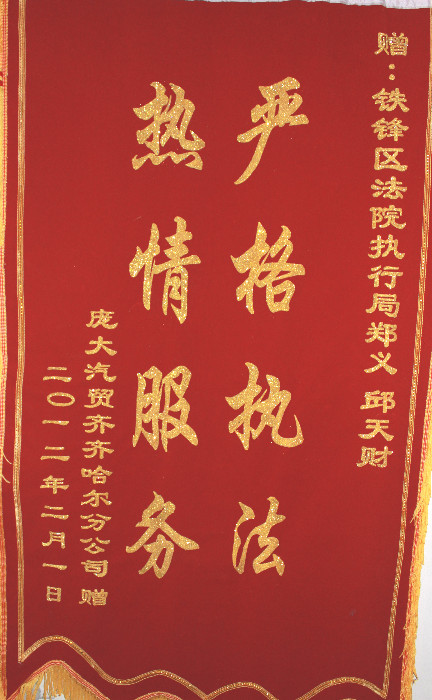 赠：铁锋区法院执行局郑义 邱天财
严格执法
热情服务
庞大汽贸齐齐哈尔分公司 赠
二〇一二年二月一日